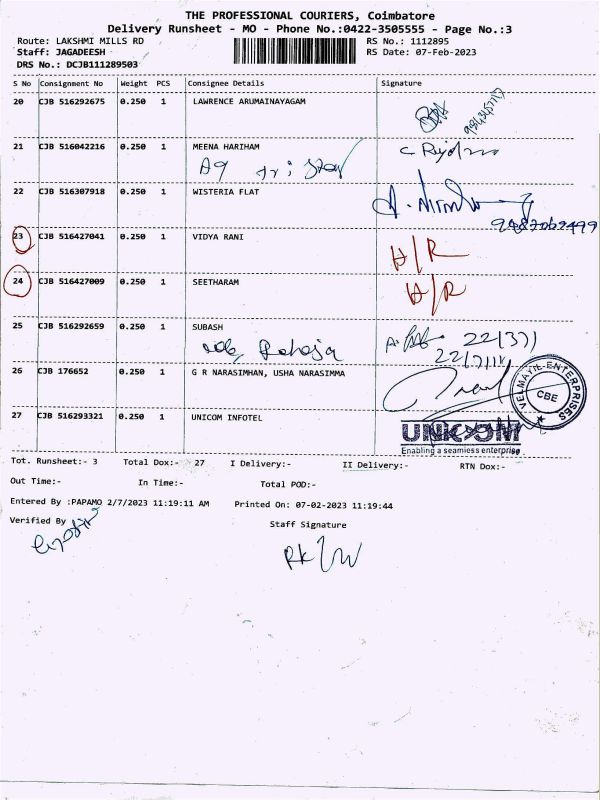 THE PROFESSIONAL COURIERS, Coimbatore
Delivery Runsheet - MO - Phone No.:0422-3505555 - Page No.:3
Route: LAKSHMI MILLS RD RS No.: 1112895
Staff: JAGADEESH RS Date: 07-Feb-2023
DRS No.: DCJB111289503
S No Consignment No Weight PCS Consignee Details Signature
20 CJB 516292675 0.250 1 LAWRENCE ARUMAINAYAGAM
21 CJB 516042216 0.250 1 MEENA HARIHAM
A9
22 CJB 516307918 0.250 1 WISTERIA FLAT
23 CJB 516427041 0.250 1 VIDYA RANI H/R
24 CJB 516427009 0.250 1 SEETHARAM H/R
25 CJB 516292659 0.250 1 SUBASH
Raheja
26 CJB 176652 0.250 1 G R NARASIMHAN, USHA NARASIMMA
VELMATIL ENTERPRISES
CBE
27 CJB 516293321 0.250 1 UNICOM INFOTEL
Enabling a seamless enterprise
Tot. Runsheet:- 3 Total Dox:- 27 I Delivery:- II Delivery:- RTN Dox:-
Out Time:- In Time:- Total POD:-
Entered By :PAPAMO 2/7/2023 11:19:11 AM Printed On: 07-02-2023 11:19:44
Verified By Staff Signature